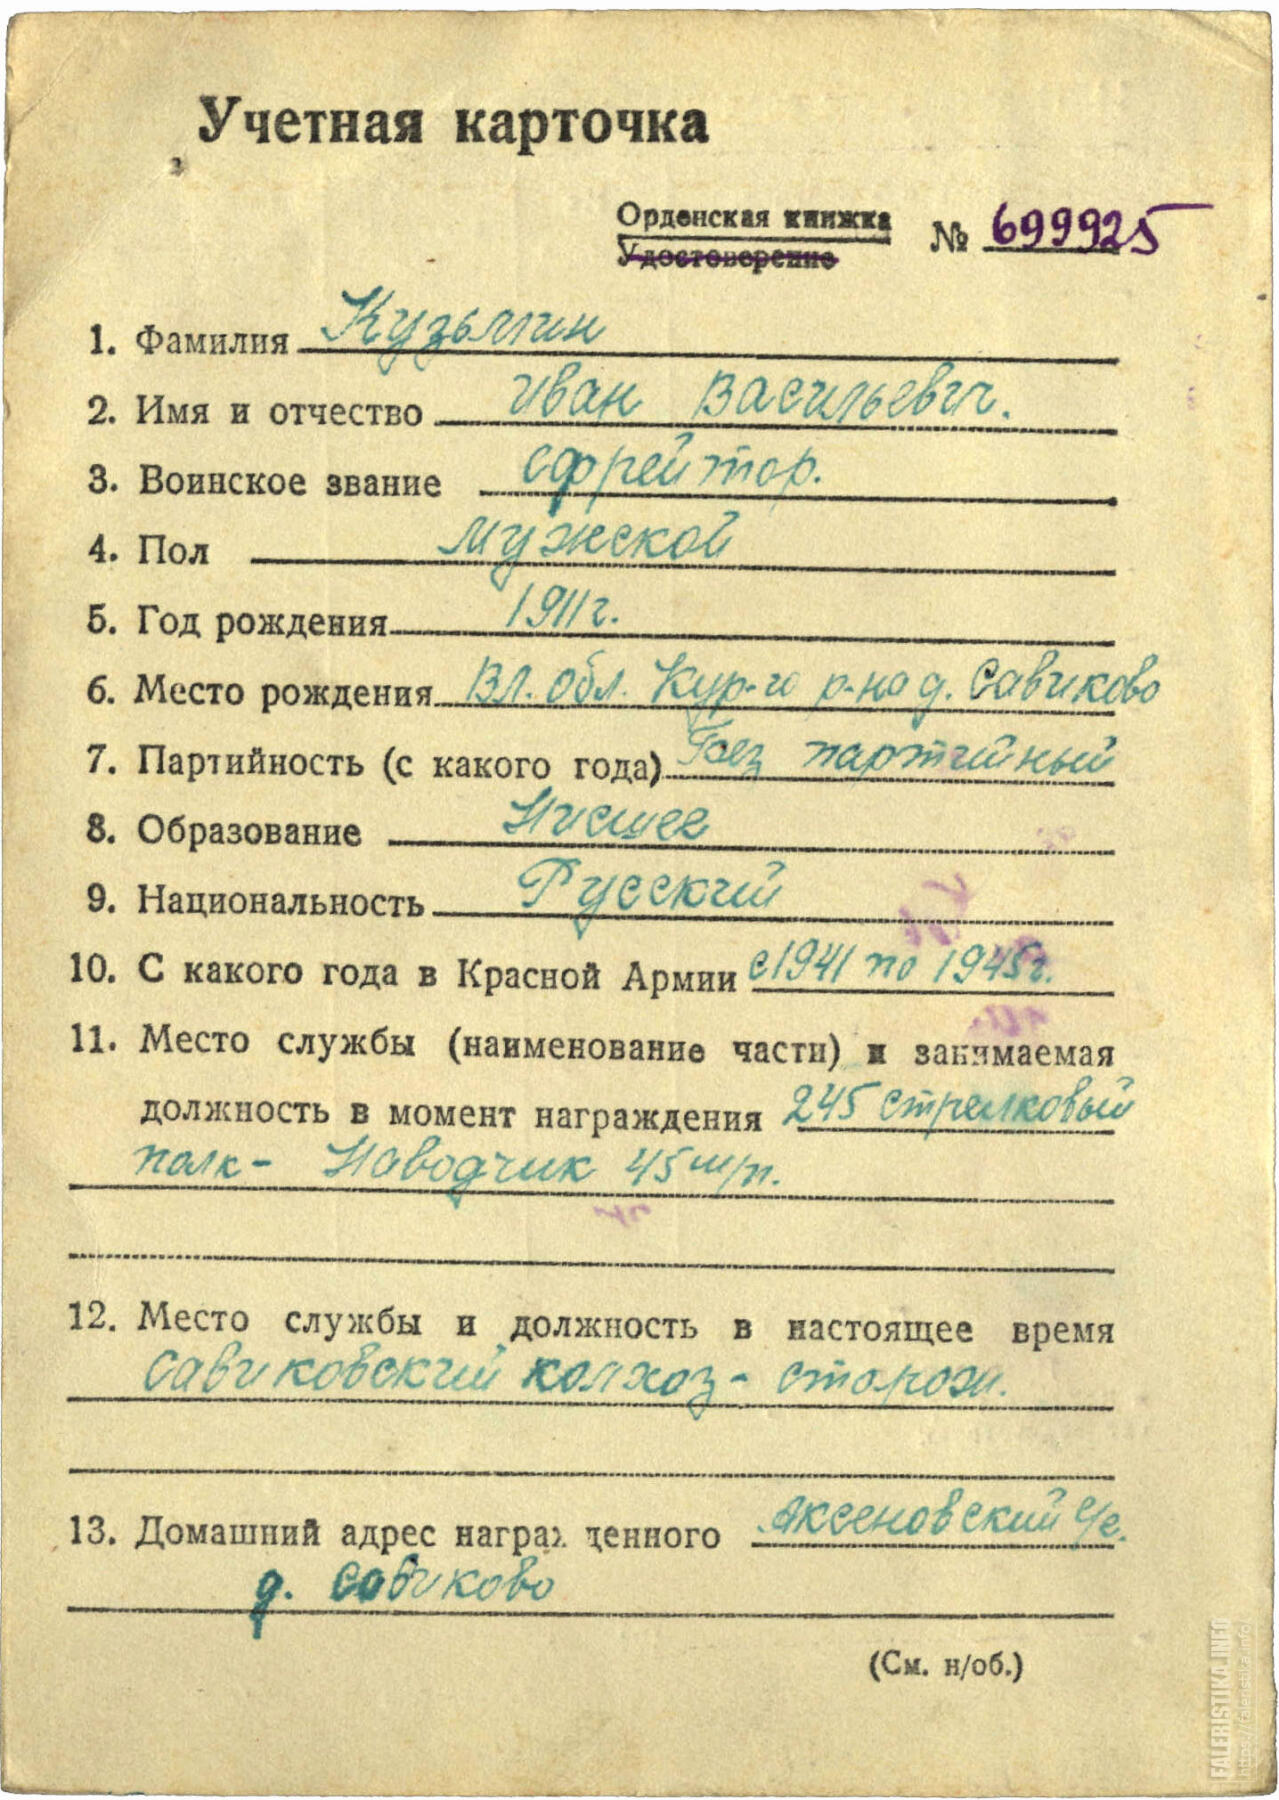 Учетная карточка
Орденская книжка
Удостоверение
№ 699925
1. Фамилия Кузьмин
2. Имя и отчество Иван Васильевич.
3. Воинское звание ефрейтор.
4. Пол мужской
5. Год рождения 1911 г.
6. Место рождения Вл. обл. Кур-го р-на д. Савиково
7. Партийность (с какого года) Без партийный
8. Образование Нисшее
9. Национальность Русский
10. С какого года в Красной Армии с 1941 по 1945 г.
11. Место службы (наименование части) и занимаемая
должность в момент награждения 245 стрелковый
полк - Наводчик 45 м/п.
12. Место службы и должность в настоящее время
Савиковский колхоз - сторож.
13. Домашний адрес награжденного Аксеновский с/с.
д. Савиково
(См. н/об.)
FALERISTIKA.INFO
https://faleristika.info/